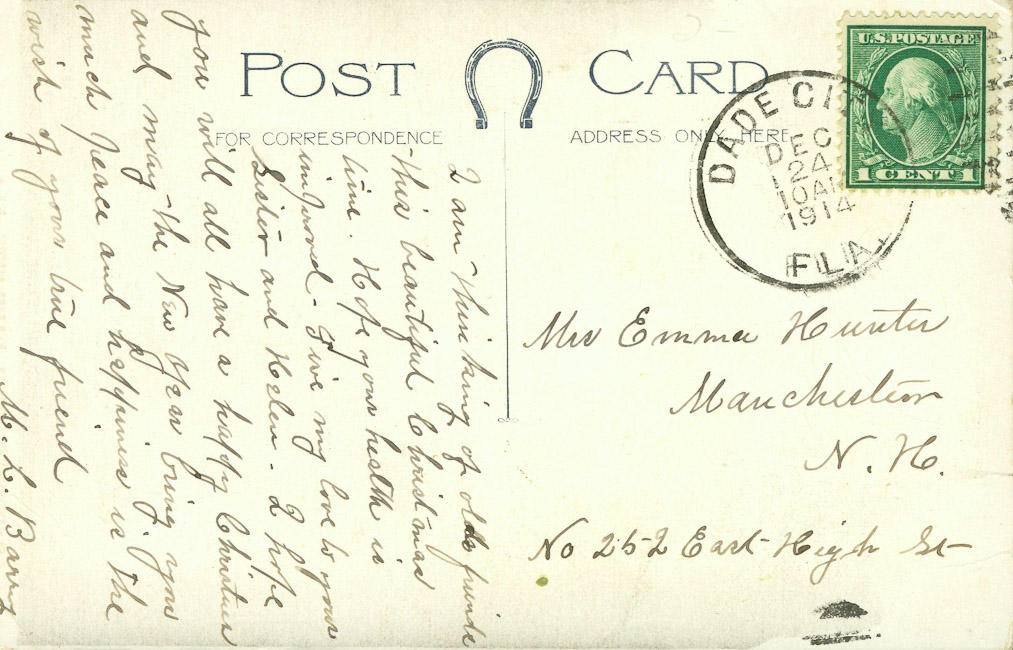 POST CARD
FOR CORRESPONDENCE
ADDRESS ONLY HERE
U.S. POSTAGE
1 CENT 1
DADE CITY
DEC
24
10 AM
1914
FLA.
Mrs Emma Hunter
Manchester
N. H.
No 252 East High St
I am thinking of olds friends
this beautiful Christmas
time. Hope your health is
improved - Give my love to your
Sister and Helen. I hope
you will all have a happy Christmas
and may the New Year bring you
much peace and happiness is the
wish of your true friend
M. L. Barry